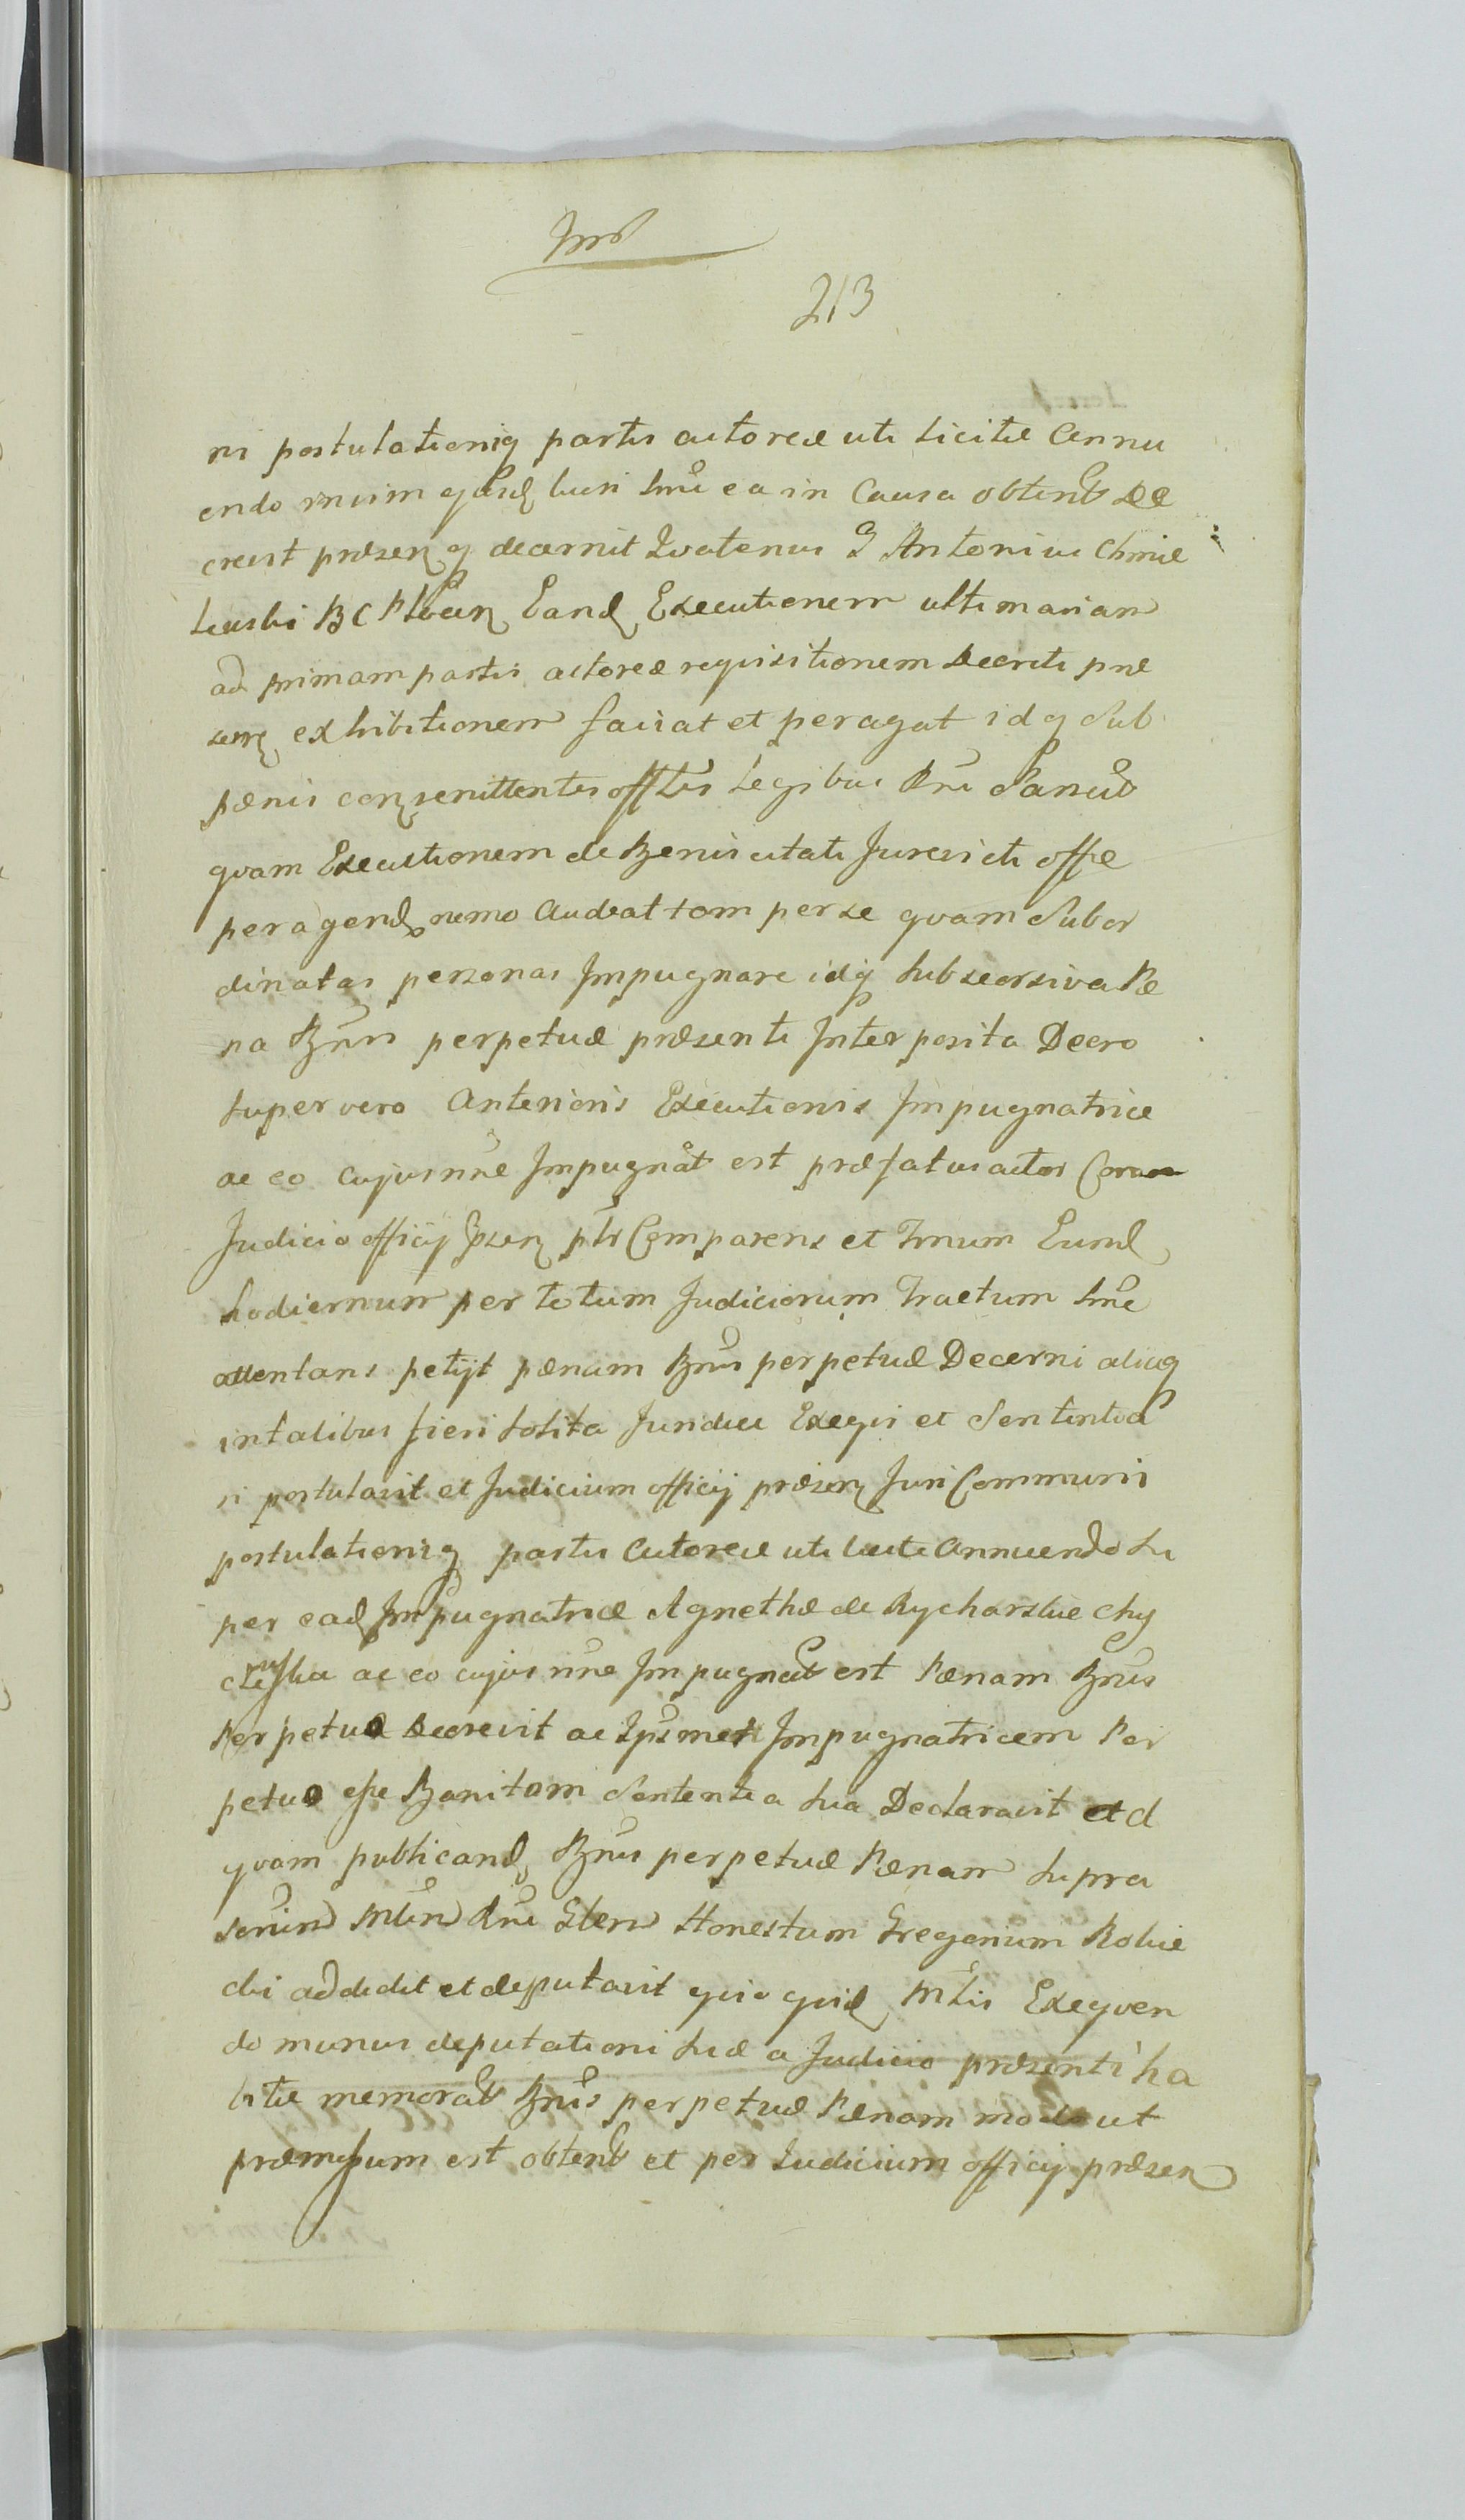 213
ni postulationiq partis actoreæ uti licitæ Annu
endo
crevit præsenq decernit Quatenus G Antonius Chmie
lewski BC Eand Executionem ultimariam
ad primam partis actoreæ requisitionem Decreti præ
sen exhibitionem faciat et peragat idq sub
pænis legibus Rni
quam Executionem de Bonis citati offe
peragend nemo Audeat tam per se quam subor
dinatas personas Impugnare idq sub seorsiva Pæ
na Bnis perpetuæ præsenti Interposita Decro
super vero Anterioris Executionis Impugnatrice
ac eo cujus nne Impugnat est præfatus actor Coram
Judicio officij psen plr Comparens et Tnum Eund
hodiernum per totum Judiciorum Tractum lme
attentans petijt pænam Bnis perpetuæ Decerni aliaq
in talibus fieri solita Juridice Exequi et Sententia
ri postulavit et Judicium officij præsen Juri Communi
postulationiq partis Actoreæ uti licite Annuendo su
per ead Impugnatrice Agnethæ de Rycharskie Chy
ac eo cujus nne Impugnat est Pænam Bnis
Perpetuæ Decrevit ac Ipsmet Impugnatricem Per
petuo esse Banitam Sententia sua Declaravit et d
quam publicand Bnis perpetuæ Pænam supra
Mlem Rni Glem Honestum Gregorium
cki addidit et deputavit qui quid Mlis Exequen
do munus deputationi suæ a Judicio præsenti ha
bitæ memorat Bnis perpetuæ Pænam modo ut
præmissum est obtent et per Judicium officij præsen